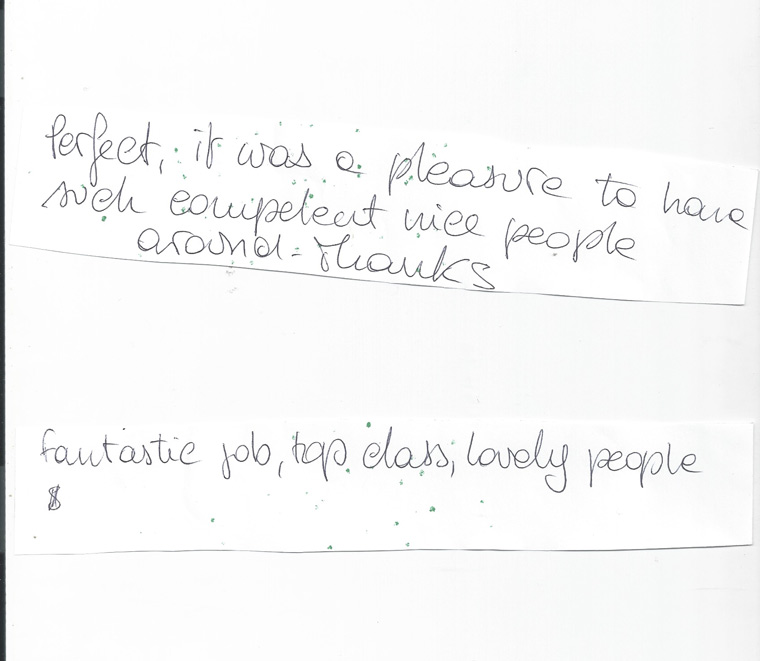 Perfect, it was a pleasure to have
such competent nice people
around - thanks
fantastic job, top class, lovely people